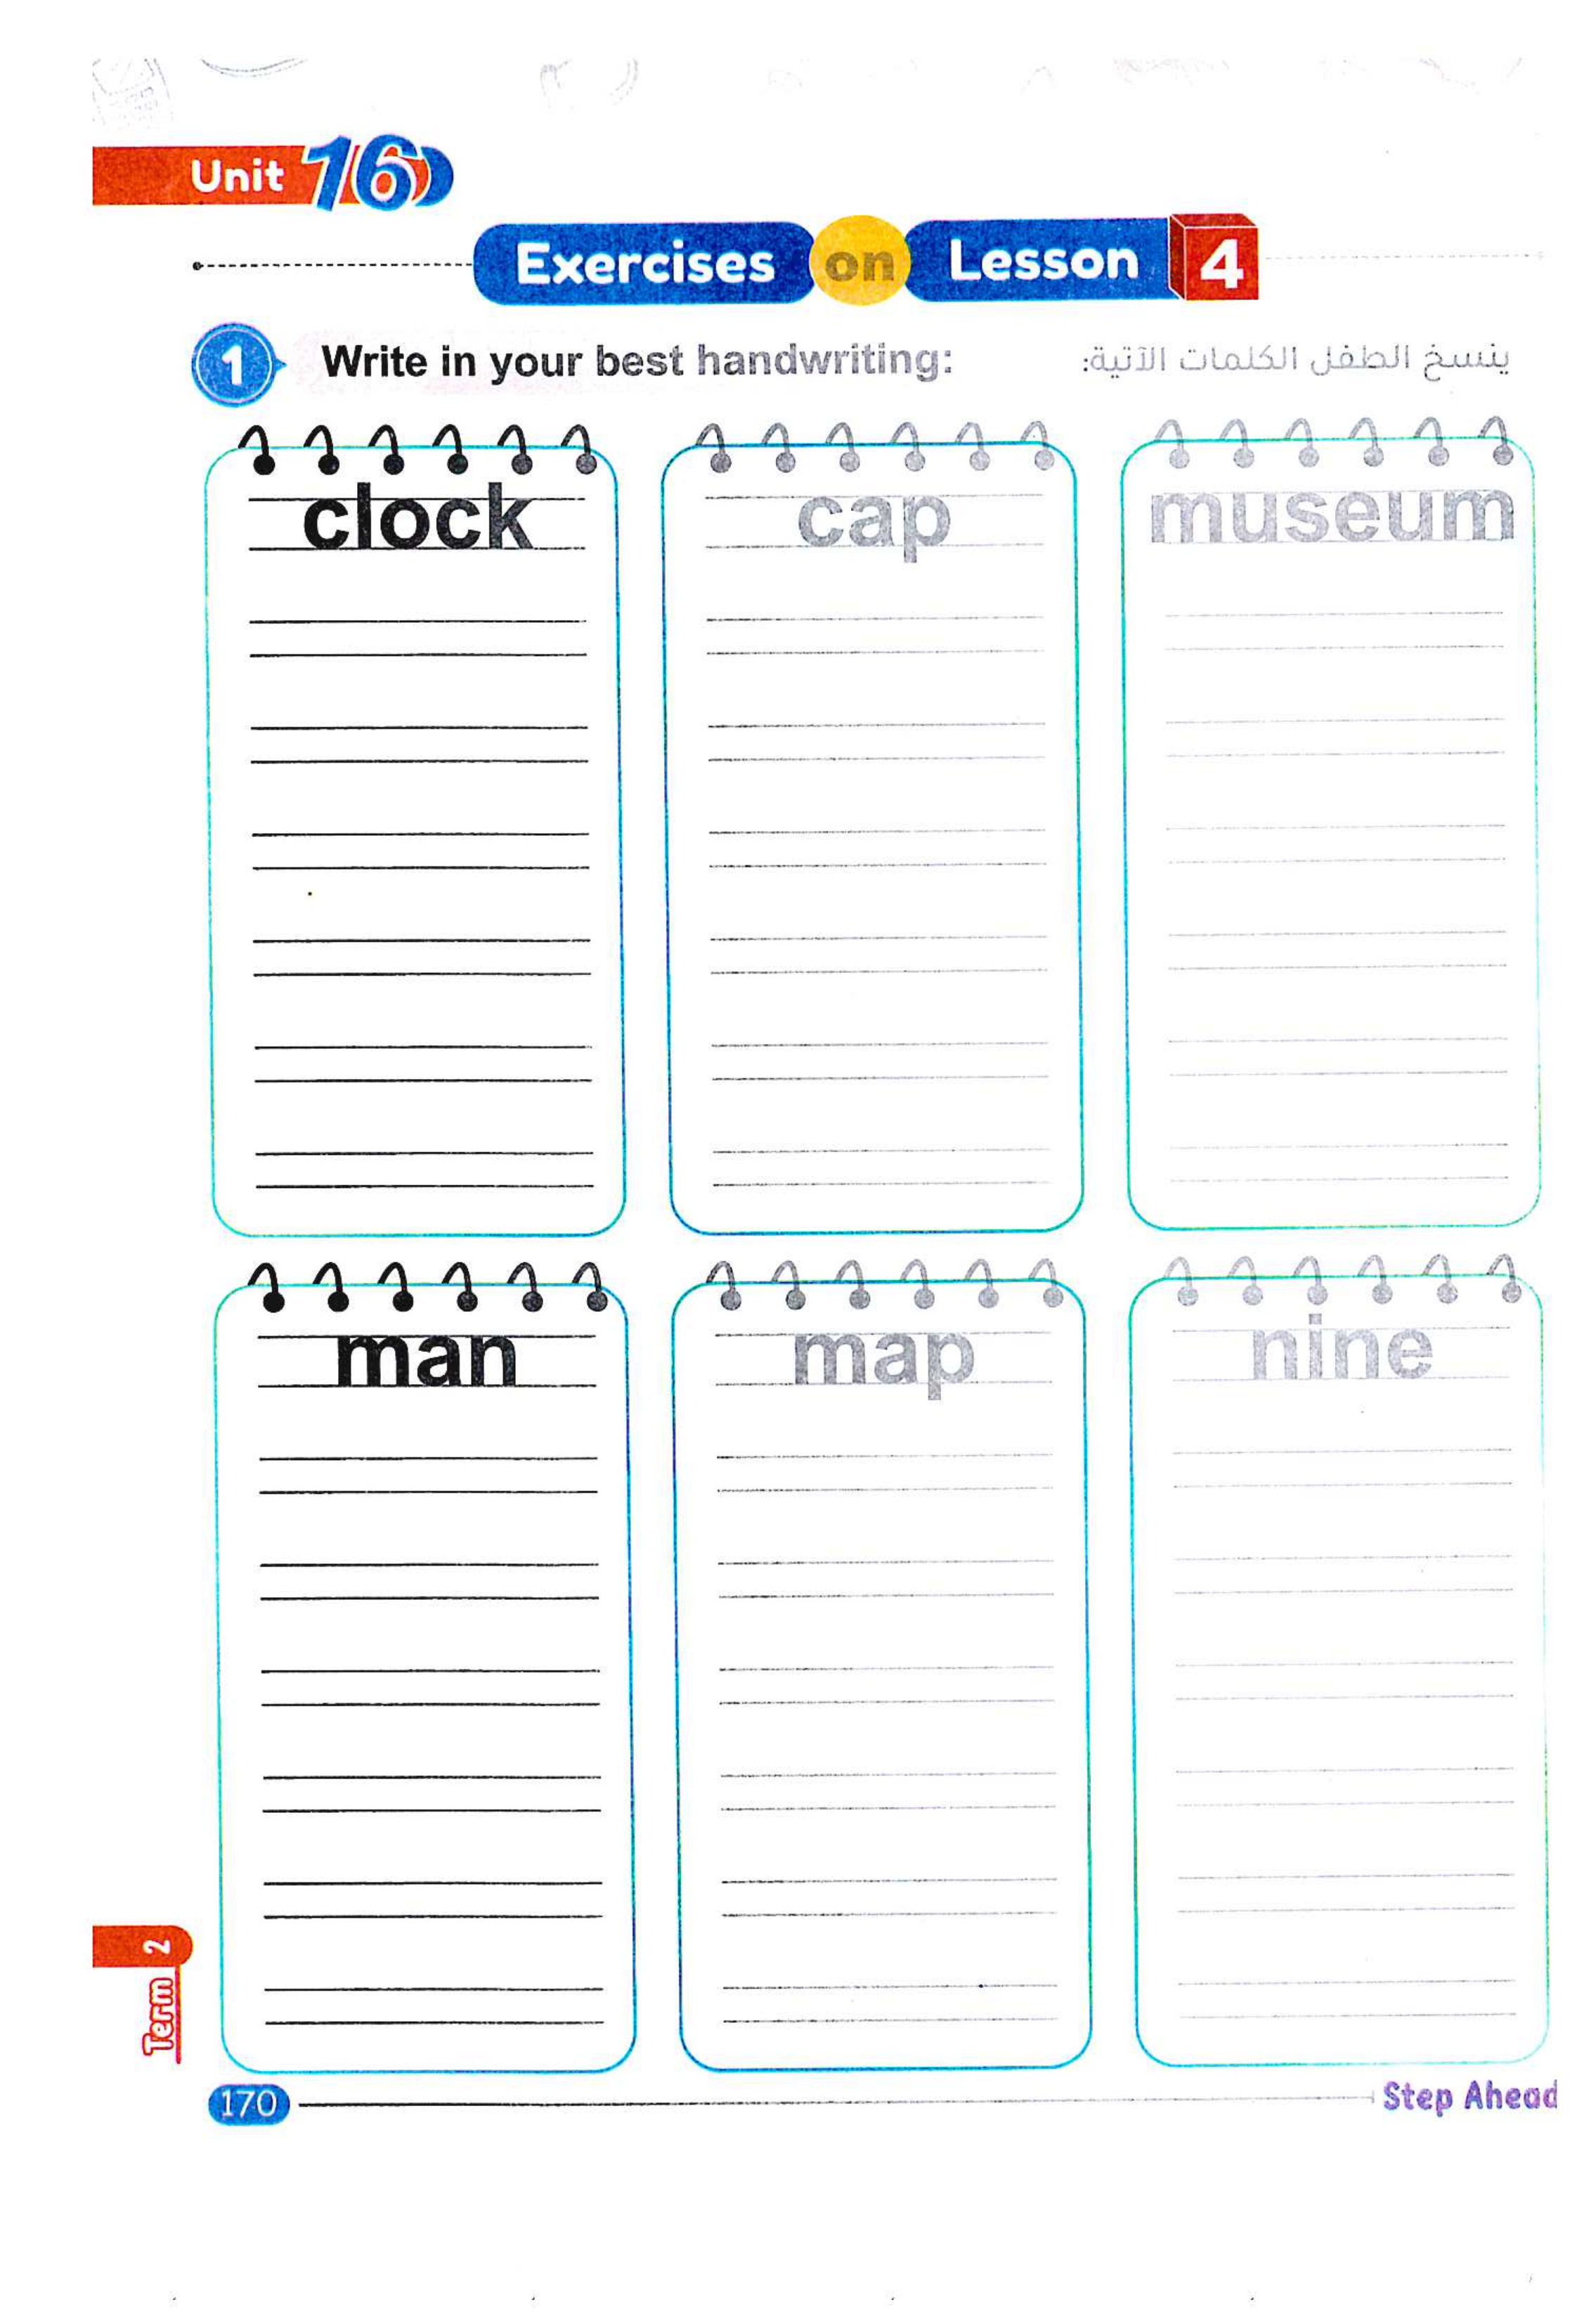 Unit 16
Exercises on Lesson 4
1 Write in your best handwriting: ينسخ الطفل الكلمات الآتية:
clock cap museum
man map nine
Term 2
170 Step Ahead